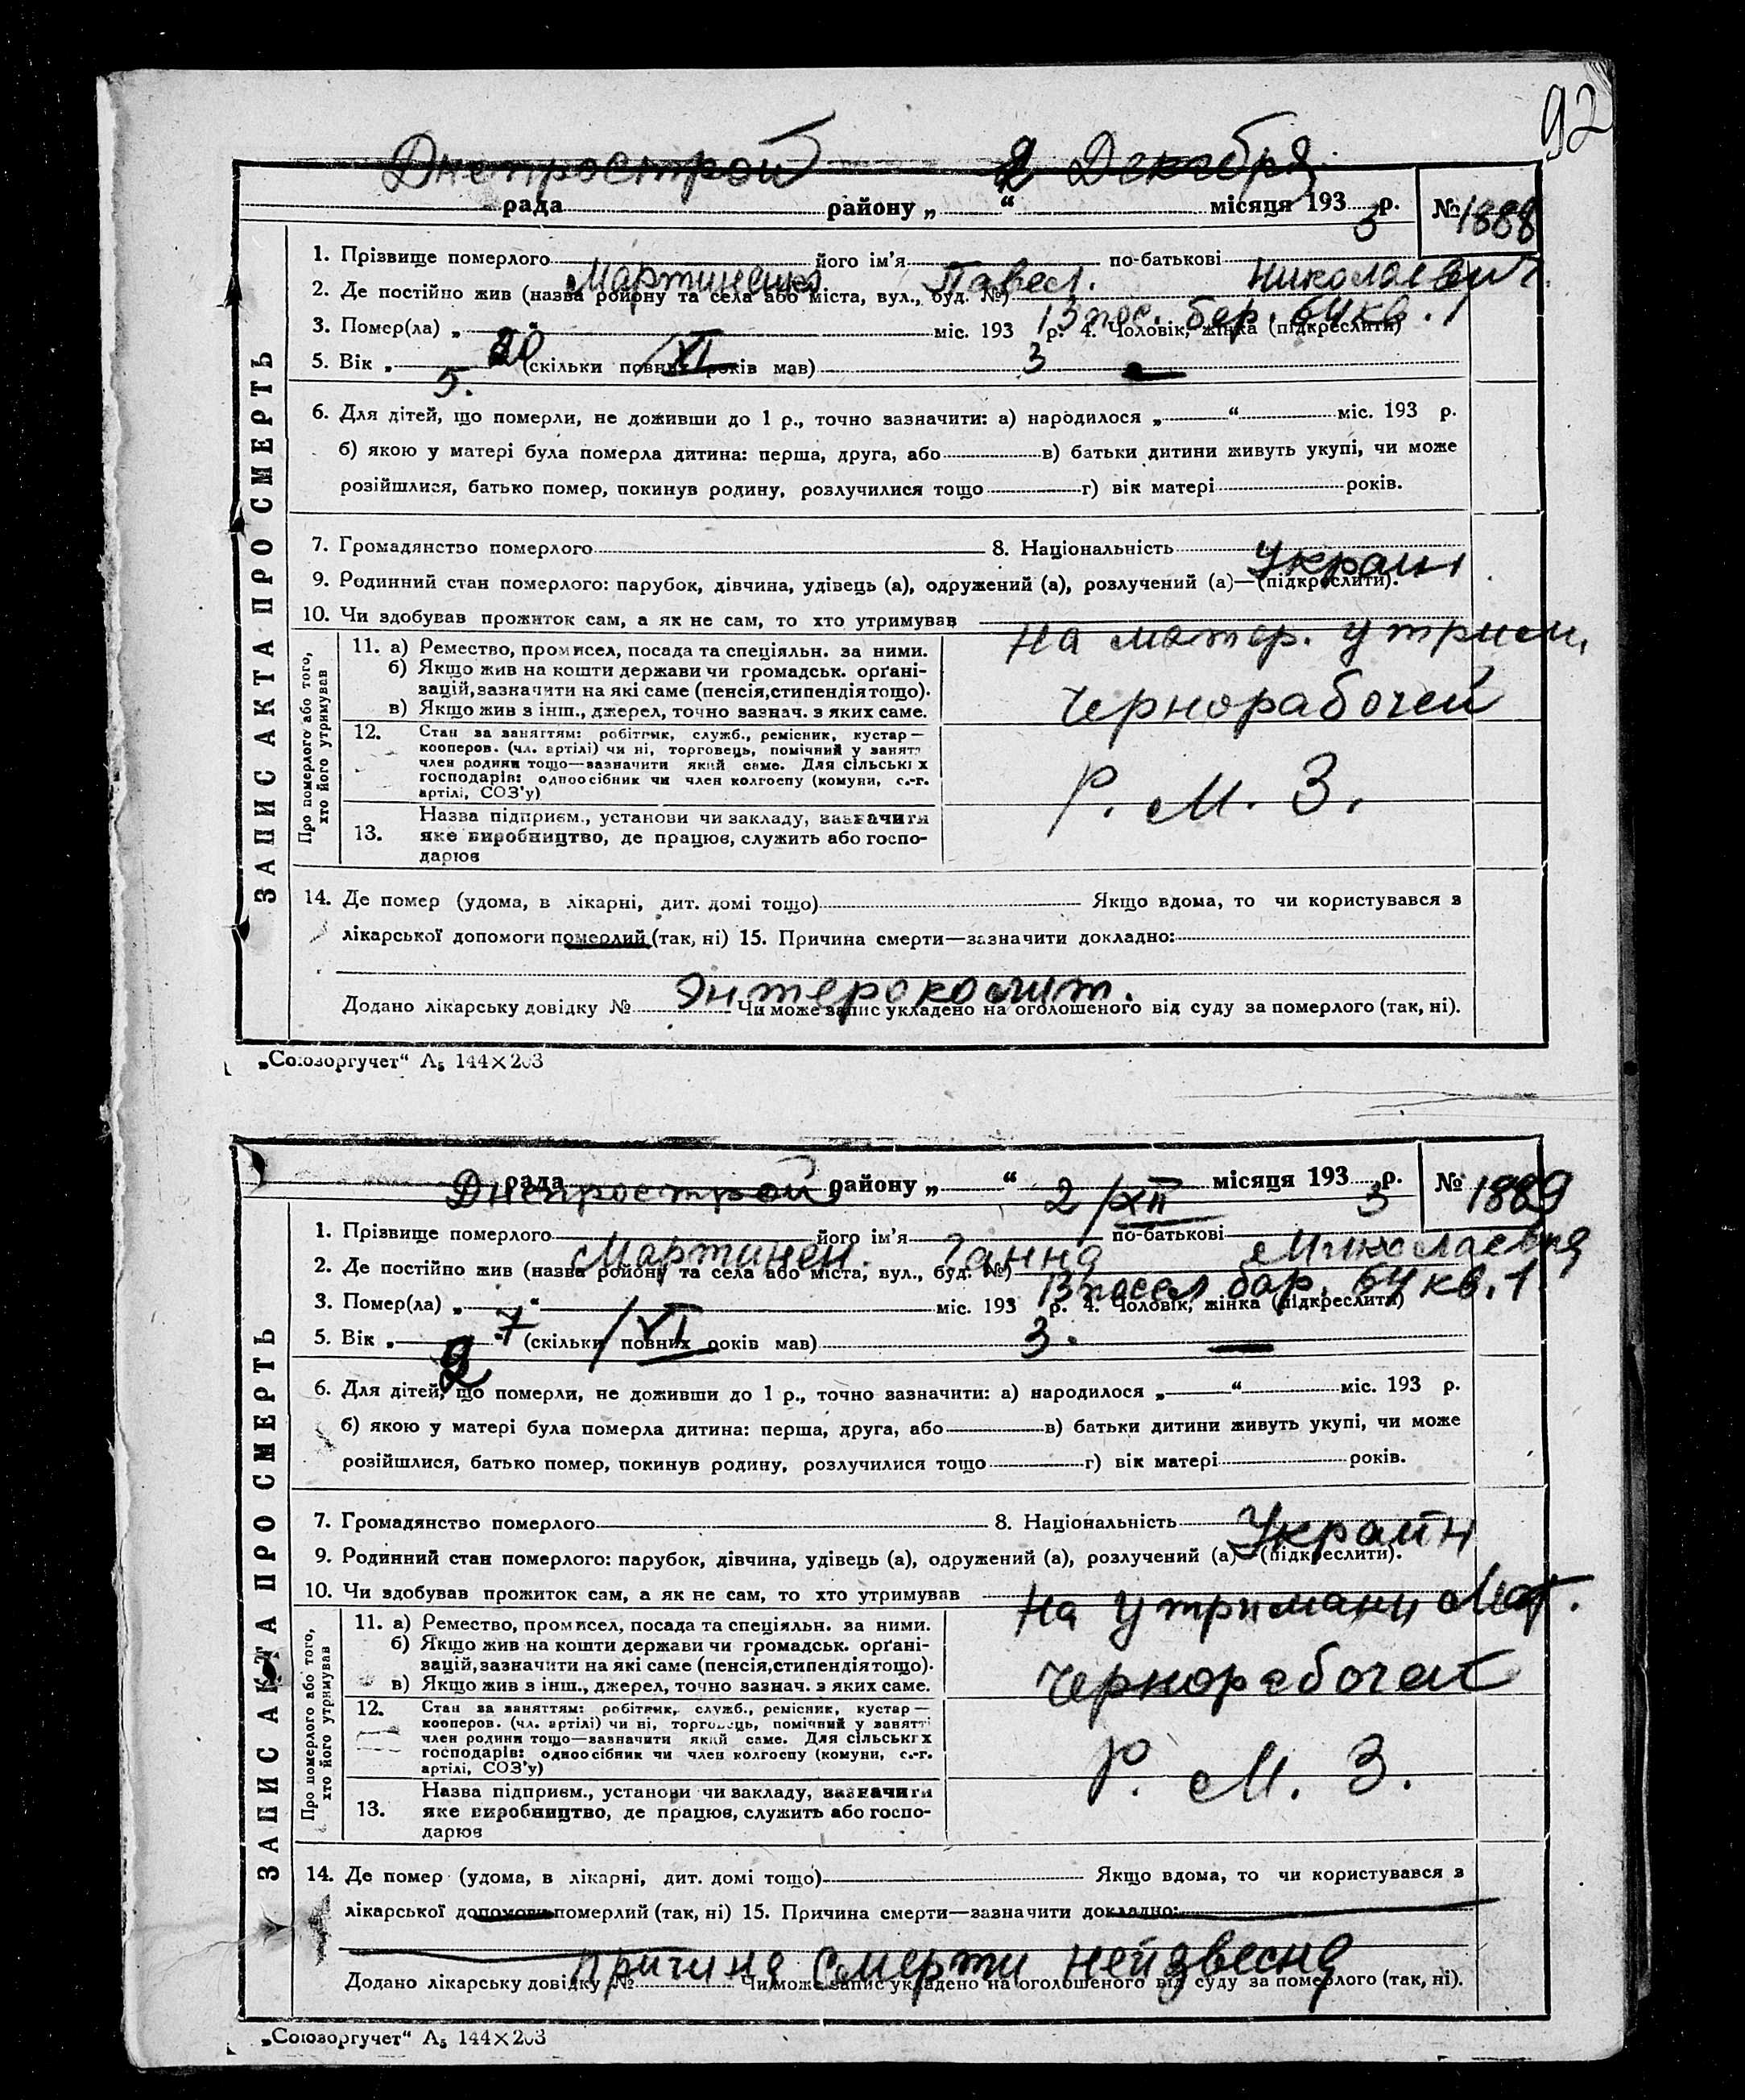 92
Днепрострой 2 Декабря
рада району „ “ місяця 193 3 р. № 1888
1. Прізвище померлого його ім'я по-батькові
Мартиненко Павел. Николаевич
2. Де постійно жив (назва району та села або міста, вул., буд. №)
13 пос. бар. 64 кв. 1
3. Помер(ла) „ “ міс. 193 р. 4. Чоловік, жінка (підкреслити)
XI 3
5. Вік „ (скільки повних років мав)
5.
6. Для дітей, що померли, не доживши до 1 р., точно зазначити: а) народилося „ “ міс. 193 р.
б) якою у матері була померла дитина: перша, друга, або в) батьки дитини живуть укупі, чи може
розійшлися, батько помер, покинув родину, розлучилися тощо г) вік матері років.
7. Громадянство померлого 8. Національність
Украин
9. Родинний стан померлого: парубок, дівчина, удівець (а), одружений (а), розлучений (а)—(підкреслити).
10. Чи здобував прожиток сам, а як не сам, то хто утримував
На матер. утрим.
ЗАПИС АКТА ПРО СМЕРТЬ
Про померлого або того, хто його утримував
11. а) Ремество, промисел, посада та спеціяльн. за ними.
б) Якщо жив на кошти держави чи громадськ. орґані-
зацій, зазначити на які саме (пенсія, стипендія тощо).
в) Якщо жив з інш., джерел, точно зазнач. з яких саме.
Чернорабочей
12. Стан за заняттям: робітник, служб., ремісник, кустар—
кооперов. (чл. артілі) чи ні, торговець, помічний у занятті
член родини тощо—зазначити який саме. Для сільських
господарів: одноосібник чи член колгоспу (комуни, с.-г.
артілі, СОЗ'у)
Р. М. З.
13. Назва підприєм., установи чи закладу, зазначити
яке виробництво, де працює, служить або госпо-
дарює
14. Де помер (удома, в лікарні, дит. домі тощо) Якщо вдома, то чи користувався з
лікарської допомоги померлий (так, ні) 15. Причина смерти—зазначити докладно:
Энтероколит.
Додано лікарську довідку № Чи може запис укладено на оголошеного від суду за померлого (так, ні).
„Союзоргучет“ А₅ 144×203
рада району „ “ місяця 193 3 р. № 1889
Днепрострой 2/XII
1. Прізвище померлого його ім'я по-батькові
Мартинен. Ганна Миколаевна
2. Де постійно жив (назва району та села або міста, вул., буд. №)
13 посел бар. 64 кв. 1
3. Помер(ла) „ “ міс. 193 р. 4. Чоловік, жінка (підкреслити)
7 / VI 3.
5. Вік „ (скільки повних років мав)
2
6. Для дітей, що померли, не доживши до 1 р., точно зазначити: а) народилося „ “ міс. 193 р.
б) якою у матері була померла дитина: перша, друга, або в) батьки дитини живуть укупі, чи може
розійшлися, батько помер, покинув родину, розлучилися тощо г) вік матері років.
7. Громадянство померлого 8. Національність
Україн
9. Родинний стан померлого: парубок, дівчина, удівець (а), одружений (а), розлучений (а)—(підкреслити).
10. Чи здобував прожиток сам, а як не сам, то хто утримував
На утримани Мат.
ЗАПИС АКТА ПРО СМЕРТЬ
Про померлого або того, хто його утримував
11. а) Ремество, промисел, посада та спеціяльн. за ними.
б) Якщо жив на кошти держави чи громадськ. орґані-
зацій, зазначити на які саме (пенсія, стипендія тощо).
в) Якщо жив з інш., джерел, точно зазнач. з яких саме.
Чернорабочей
12. Стан за заняттям: робітник, служб., ремісник, кустар—
кооперов. (чл. артілі) чи ні, торговець, помічний у занятті
член родини тощо—зазначити який саме. Для сільських
господарів: одноосібник чи член колгоспу (комуни, с.-г.
артілі, СОЗ'у)
Р. М. З.
13. Назва підприєм., установи чи закладу, зазначити
яке виробництво, де працює, служить або госпо-
дарює
14. Де помер (удома, в лікарні, дит. домі тощо) Якщо вдома, то чи користувався з
лікарської допомоги померлий (так, ні) 15. Причина смерти—зазначити докладно:
причина смерти неизвесна
Додано лікарську довідку № Чи може запис укладено на оголошеного від суду за померлого (так, ні).
„Союзоргучет“ А₅ 144×203